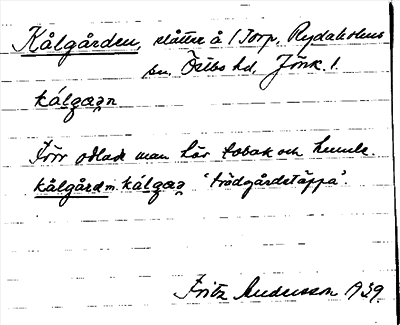 Kålgården, slåtter å 1 Torp, Rydaholms
sn, Östbo hd, Jönk. l.
kálgaṇ
Förr odlade man här tobak och humle.
kålgård m. kálga 'trädgårdstäppa'.
Fritz Andersson 1939.